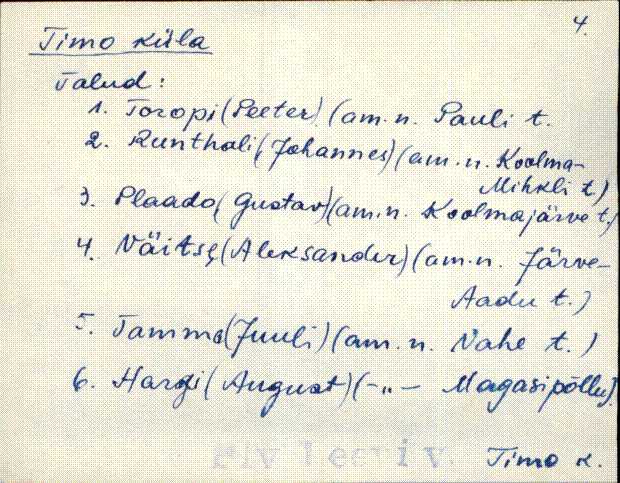 4.
Timo küla
Talud:
1. Toropi (Peeter) (am.n. Pauli t.
2. Runthali (Johannes) (am.n. Koolma-
Mihkli t.)
3. Plaado (Gustav) (am.n. Koolmajärve t.)
4. Väitse (Aleksander) (am.n. Järve-
Aadu t.)
5. Tamme (Juuli) (am.n. Vahe t.)
6. Hargi (August) (-„- Magasipõllu).
Timo k.